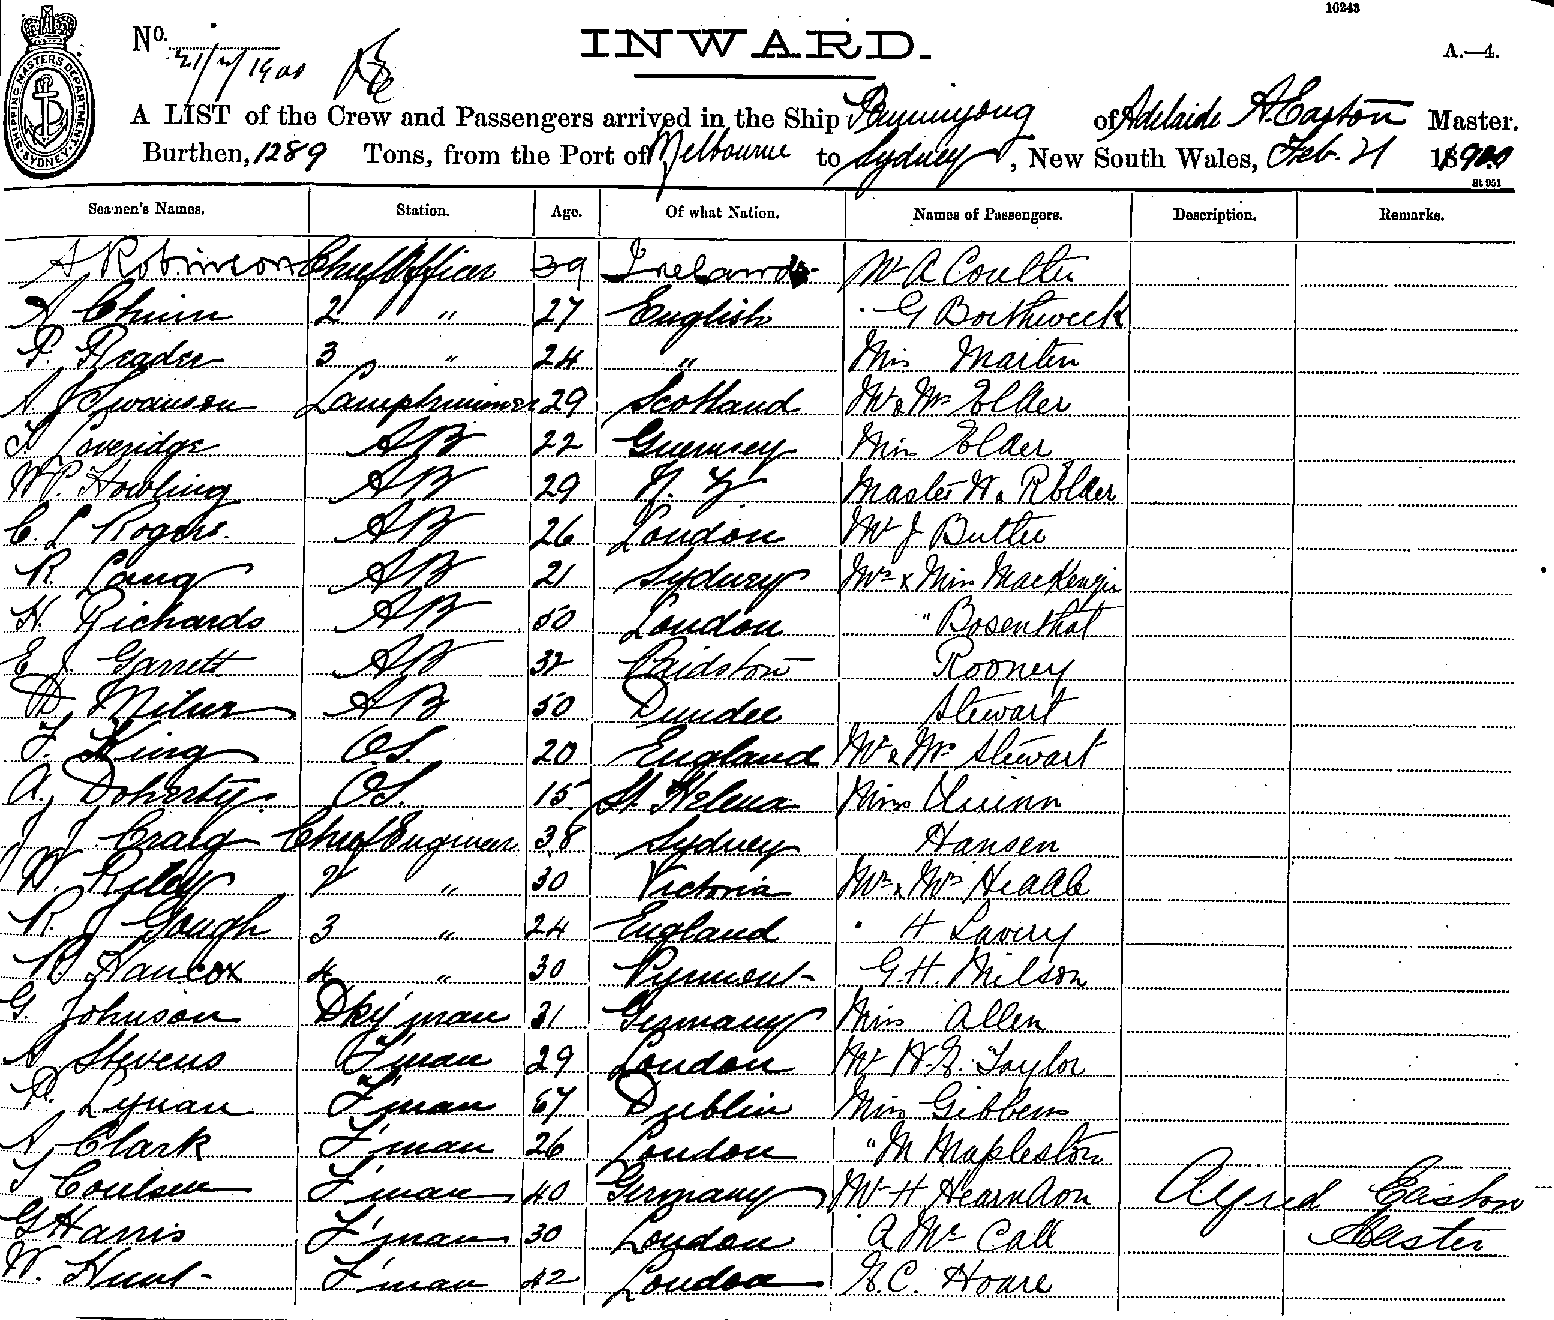 10243
No. 21/2/1900
INWARD.
A.—4.
SHIPPING MASTERS DEPARTMENT. SYDNEY
A LIST of the Crew and Passengers arrived in the Ship of Adelaide A Easton Master.
Burthen, 1289 Tons, from the Port of Melbourne to Sydney, New South Wales, Feb. 21 1900
St 951
Seamen's Names. Station. Age. Of what Nation. Names of Passengers. Description. Remarks.
A Robinson Chief Officer 39 Ireland W A Coulter
A Chinn 2 " 27 English G Borthwick
P. Reader 3 " 24 " Miss Martin
A J Swanson Lamptrimmer 29 Scotland Mr & Mrs Elder
Loveridge AB 22 Guernsey Miss Elder
W P. Howling AB 29 N. Z Master W & R Elder
C. L Rogers. AB 26 London Mr J Butler
R Lang AB 21 Sydney Mrs & Miss MacKenzie
H. Richards AB 50 London " Bosenthal
E J. Garrett AB 32 Rooney
D Milne AB 50 Dundee Stewart
F. King O.S. 20 England Mr & Mrs Stewart
A. Doherty O.S. 15 St Helena Miss Quinn
J J Craig Chief Engineer 38 Sydney Hansen
W. Riley 2 " 30 Victoria Mr & Mrs
R. J Gough 3 " 24 England H Lavery
Hancox 4 " 30 Pyrmont G. H. Milson
G. Johnson Dky'man 31 Germany Miss Allen
A Stevens F'man 29 London Mr Taylor
P. Lynan F'man 67 Dublin Miss Gibbens
A Clark F'man 26 London " M Mapleston
Coulsen F'man 40 Germany Mr H Hearndon Alfred Easton
G Harris F'man 30 London A McCall Master
W. Hunt F'man 42 London Hoare